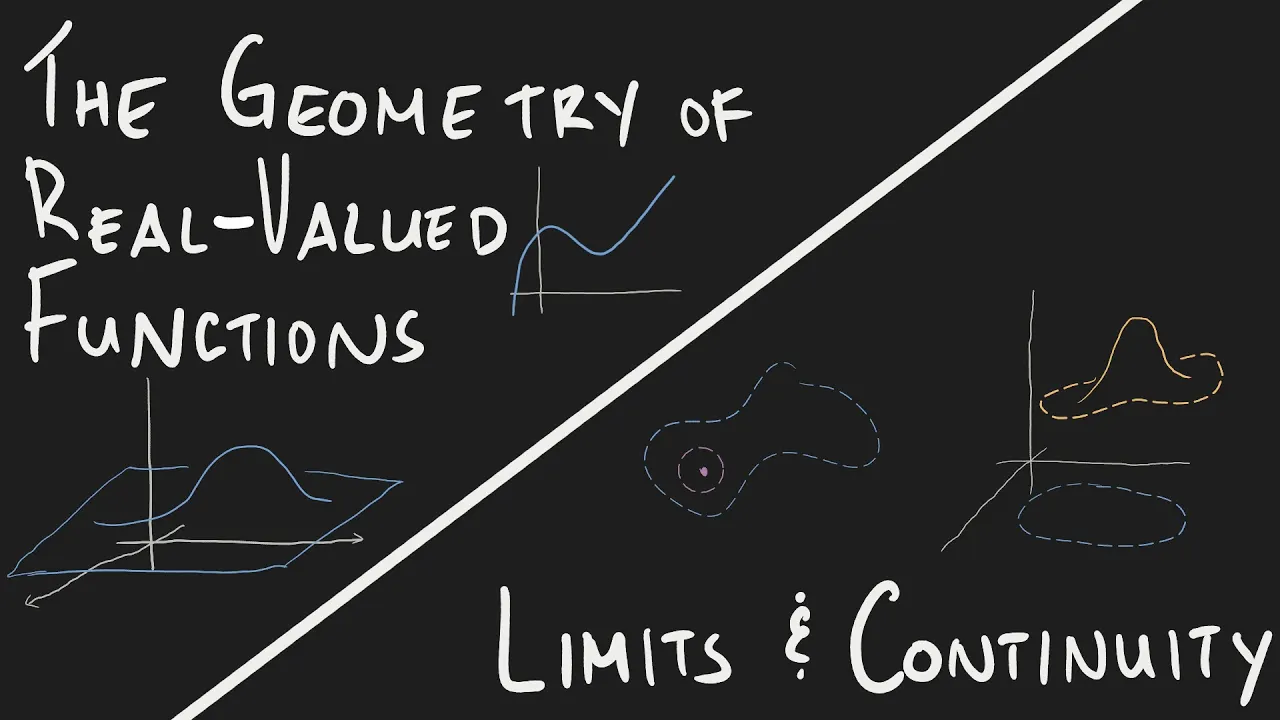 The Geometry of
Real-Valued
Functions
Limits & Continuity